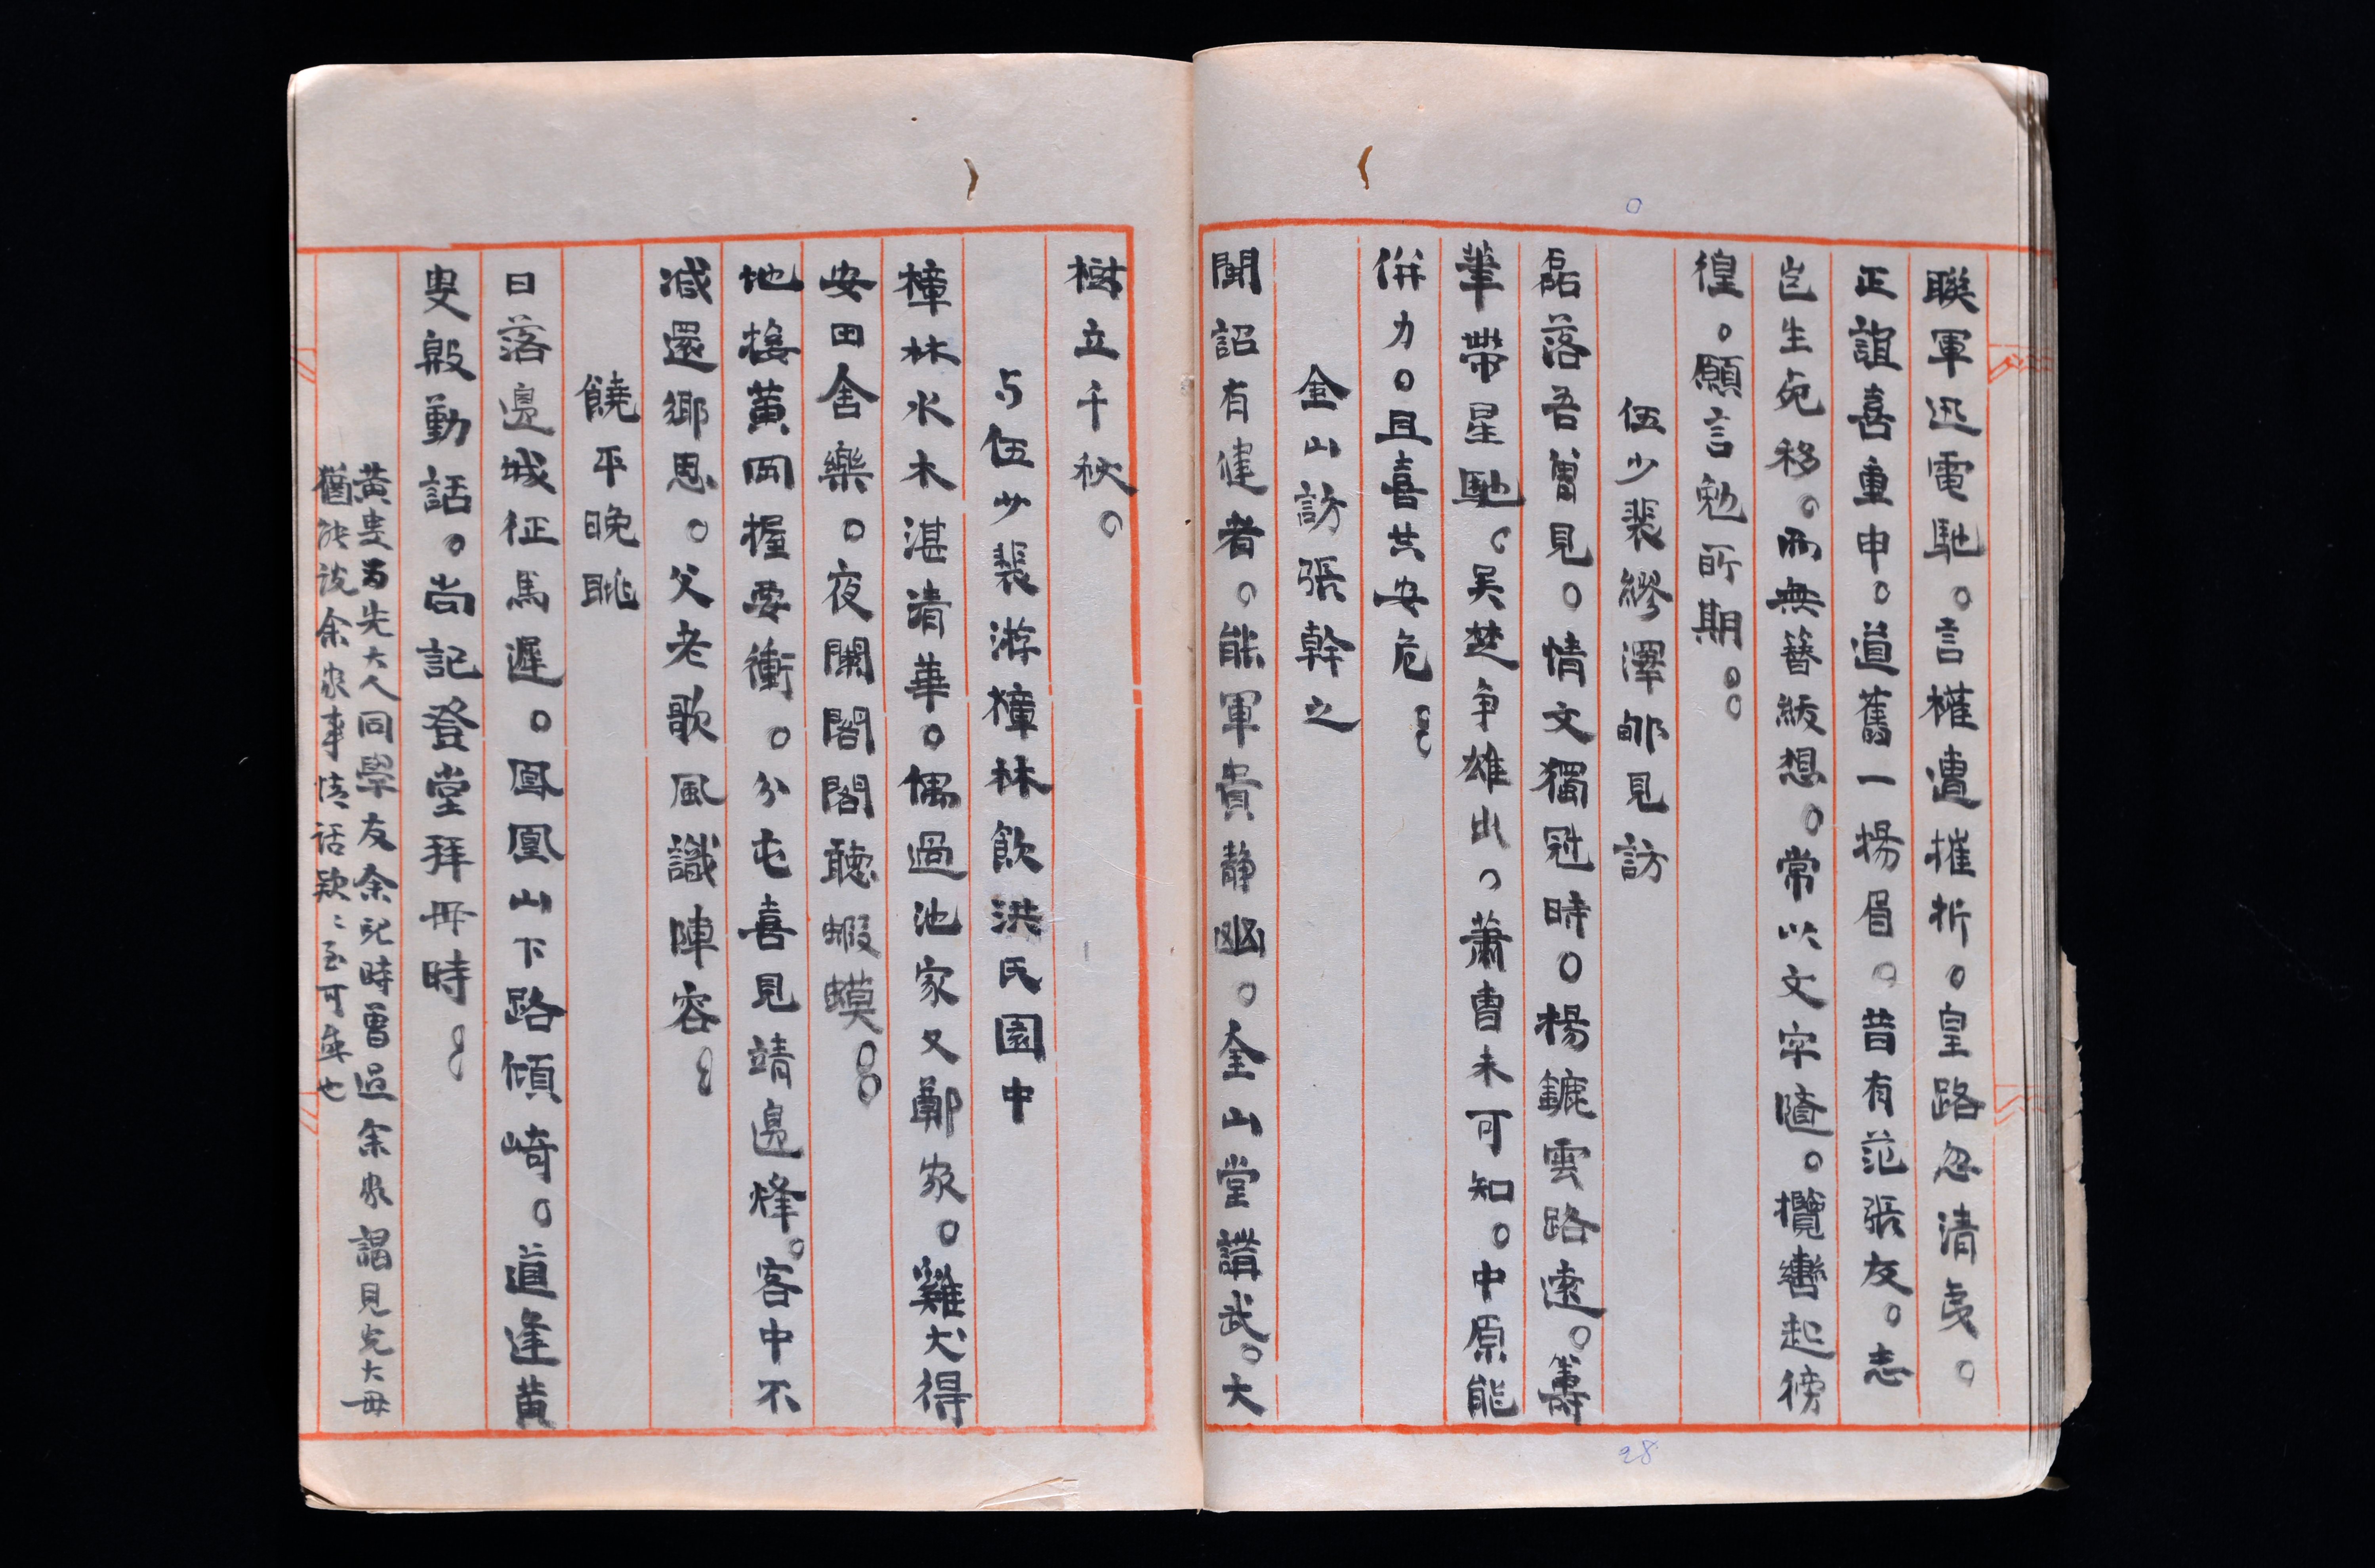 聯軍迅電馳。言權遭摧折。皇路忽清夷。
正誼喜重申。道舊一揚眉。昔有范張友。志
豈生死移。而無簪紱想。常以文字隨。攬轡起徬
徨。願言勉所期。
伍少裴繆澤邨見訪
磊落吾曾見。情文獨冠時。揚鑣雲路遠。籌
筆帶星馳。吳楚争雄出。蕭曹未可知。中原能
併力。且喜共安危
金山訪張幹之
聞詔有健者。能軍貴靜幽。金山堂講武。大
樹立千秋。
与伍少裴游樟林飲洪氏園中
樟林水木湛清華。偶過池家又鄭家。雞犬得
安田舍樂。夜闌閣閣聽蝦蟆
地接黃岡握要衝。分屯喜見靖邊烽。客中不
减還鄉思。父老歌風識陣容
饒平晚眺
日落邊城征馬遲。鳳凰山下路傾崎。道逢黄
叟殷勤話。尚記登堂拜毋時。
黄叟为先大人同學友余兒時曾過余家謁見先大毋
猶能说余家事情话欵〻至可感也
28